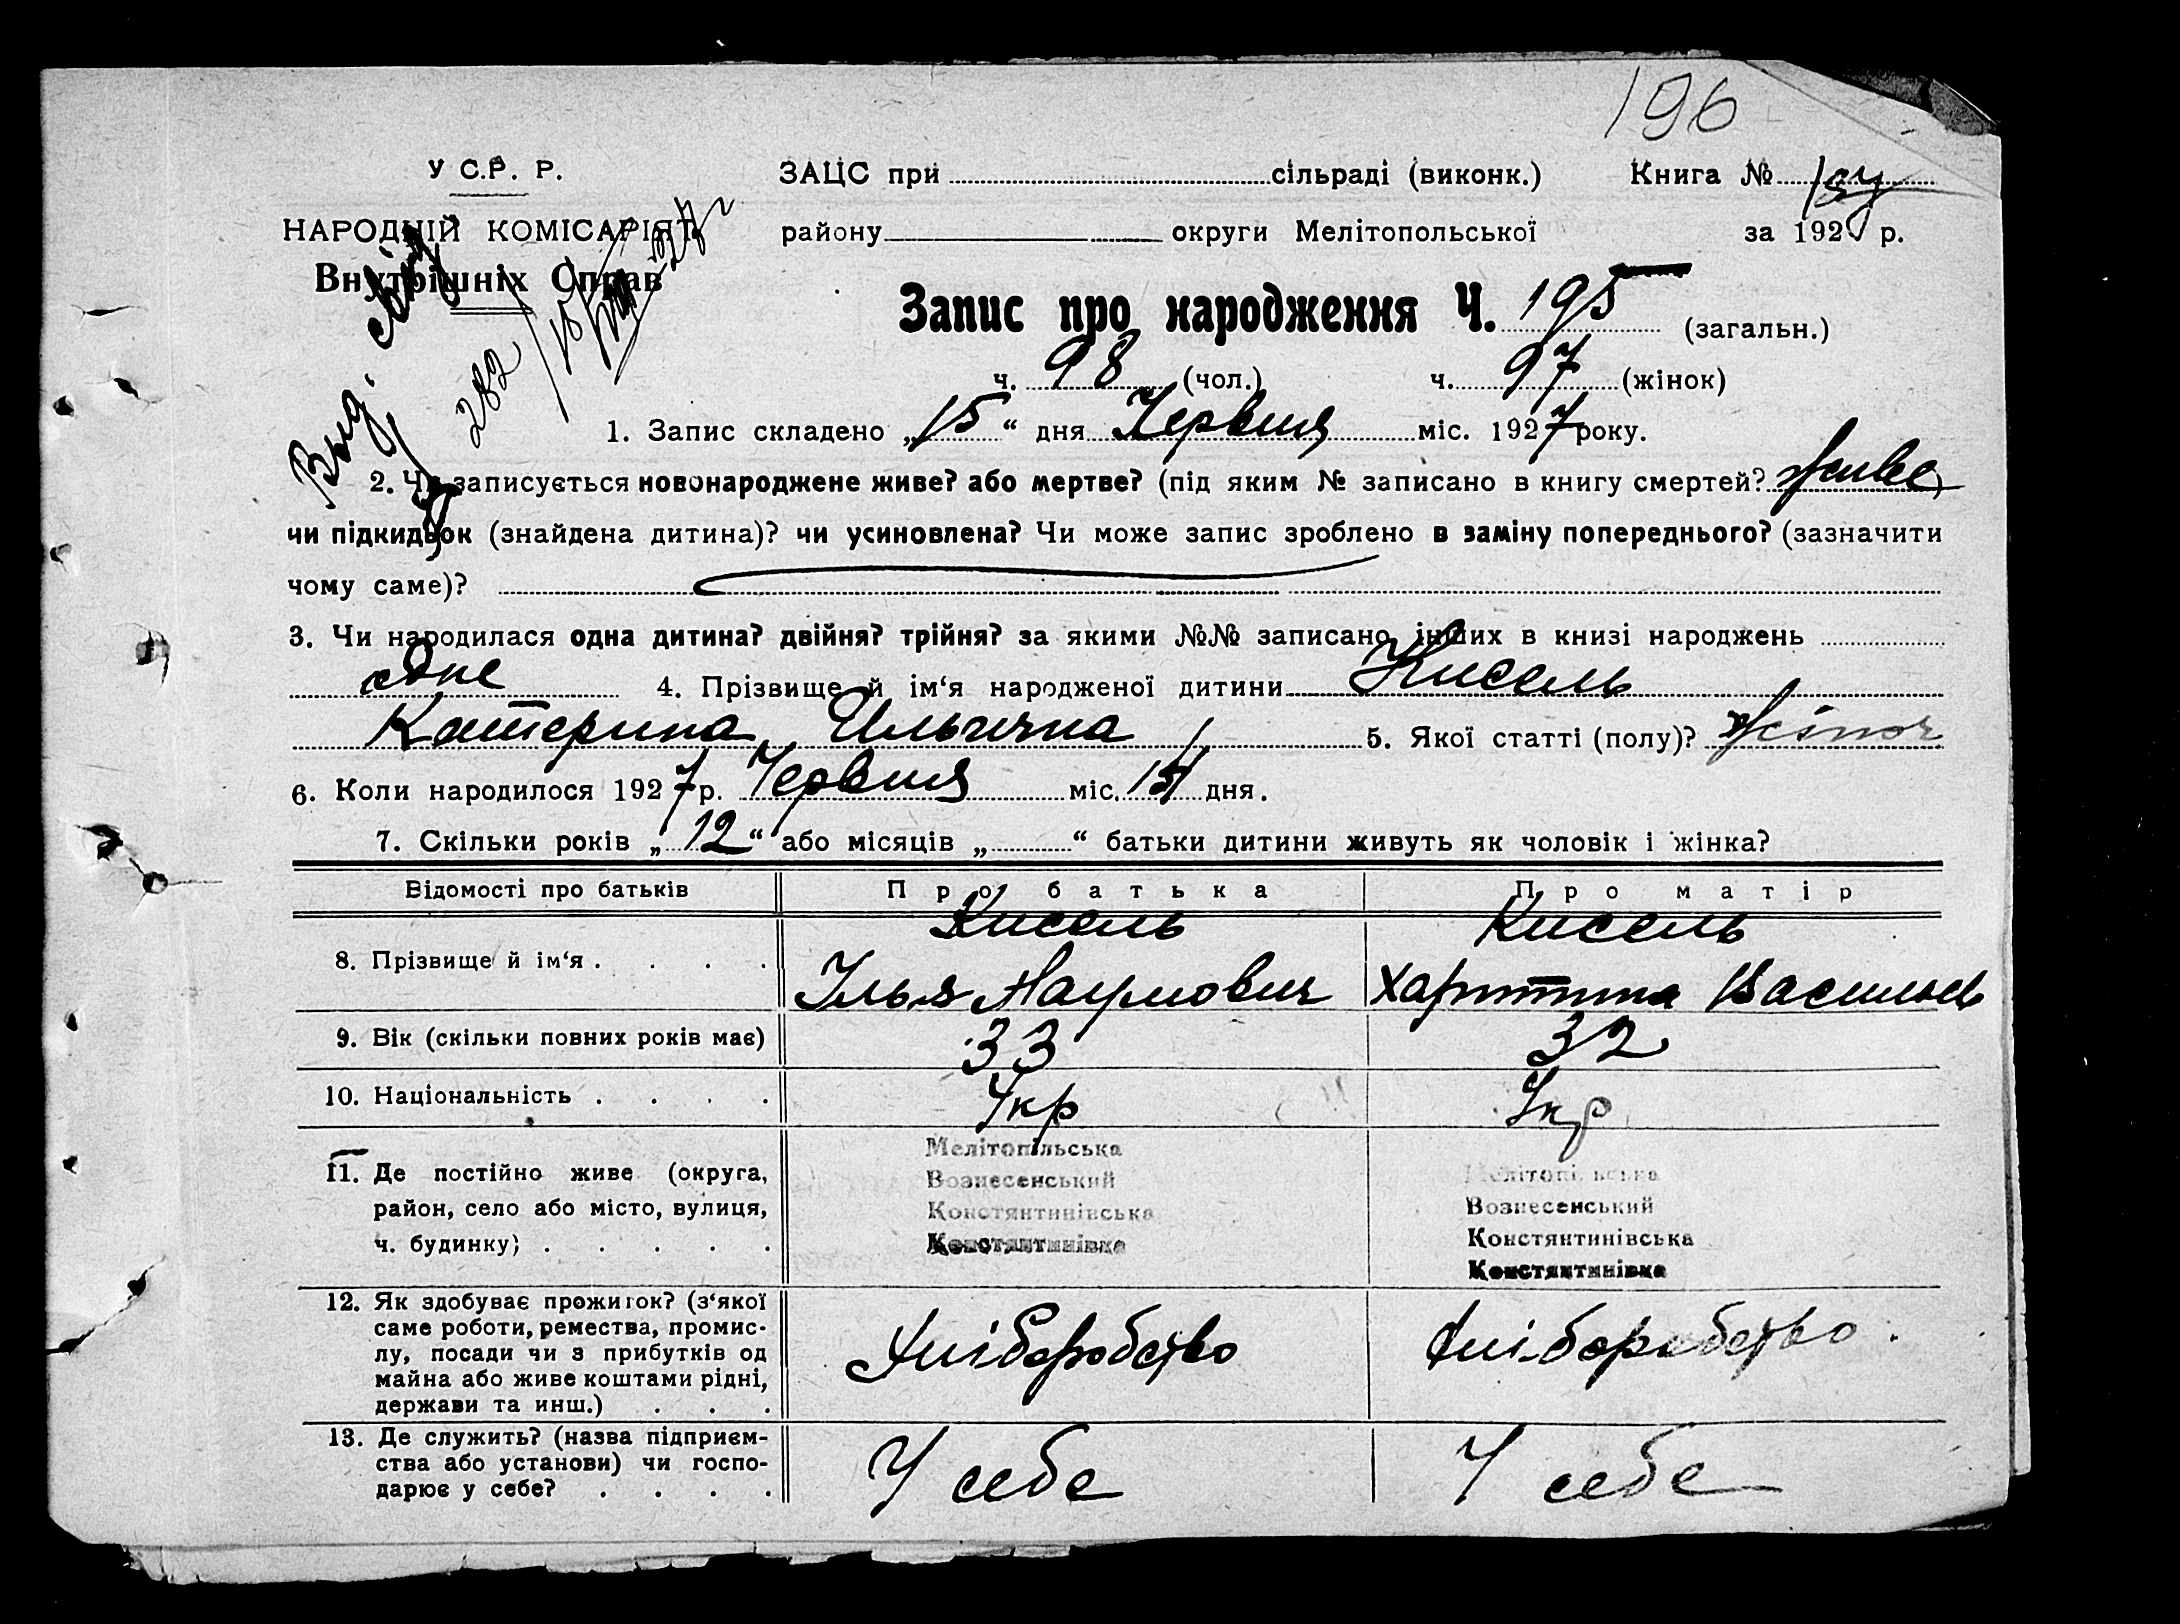 196
У С.Р. Р.
ЗАЦС при сільраді (виконк.) Книга №
НАРОДНІЙ КОМІСАРІЯТ
району округи Мелітопольської за 192 р.
Внутрішніх Справ
Запис про народження Ч. 195 (загальн.)
ч. 98 (чол.) ч. 97 (жінок)
1. Запис складено „15“ дня Червня міс. 1927 року.
2. Чи записується новонароджене живе? або мертве? (під яким № записано в книгу смертей? живе)
чи підкидьок (знайдена дитина)? чи усиновлена? Чи може запис зроблено в заміну попереднього? (зазначити
чому саме)?
3. Чи народилася одна дитина? двійня? трійня? за якими №№ записано інших в книзі народжень
одне 4. Прізвище й ім‘я народженої дитини Кисель
Катерина Ильична 5. Якої статті (полу)? жіноч
6. Коли народилося 1927 р. Червня міс. дня.
7. Скільки років „12“ або місяців „ “ батьки дитини живуть як чоловік і жінка?
Відомості про батьків Про батька Про матір
8. Прізвище й ім‘я . . . . Кисель Кисель
Илья Наумович Харитина Васильев
9. Вік (скільки повних років має) 33 32
10. Національність . . . . Укр Укр
11. Де постійно живе (округа, район, село або місто, вулиця, ч. будинку) . . . . .
Мелітопільська
Вознесенський
Константинівська
Константинівка
Мелітопільська
Вознесенський
Константинівська
Константинівка
12. Як здобуває прожиток? (з‘якої
саме роботи, ремества, промис-
лу, посади чи з прибутків од
майна або живе коштами рідні,
держави та инш.) . . .
Хліборобство Хліборобство
13. Де служить? (назва підприєм-
ства або установи) чи госпо-
дарює у себе? . . . .
У себе У себе